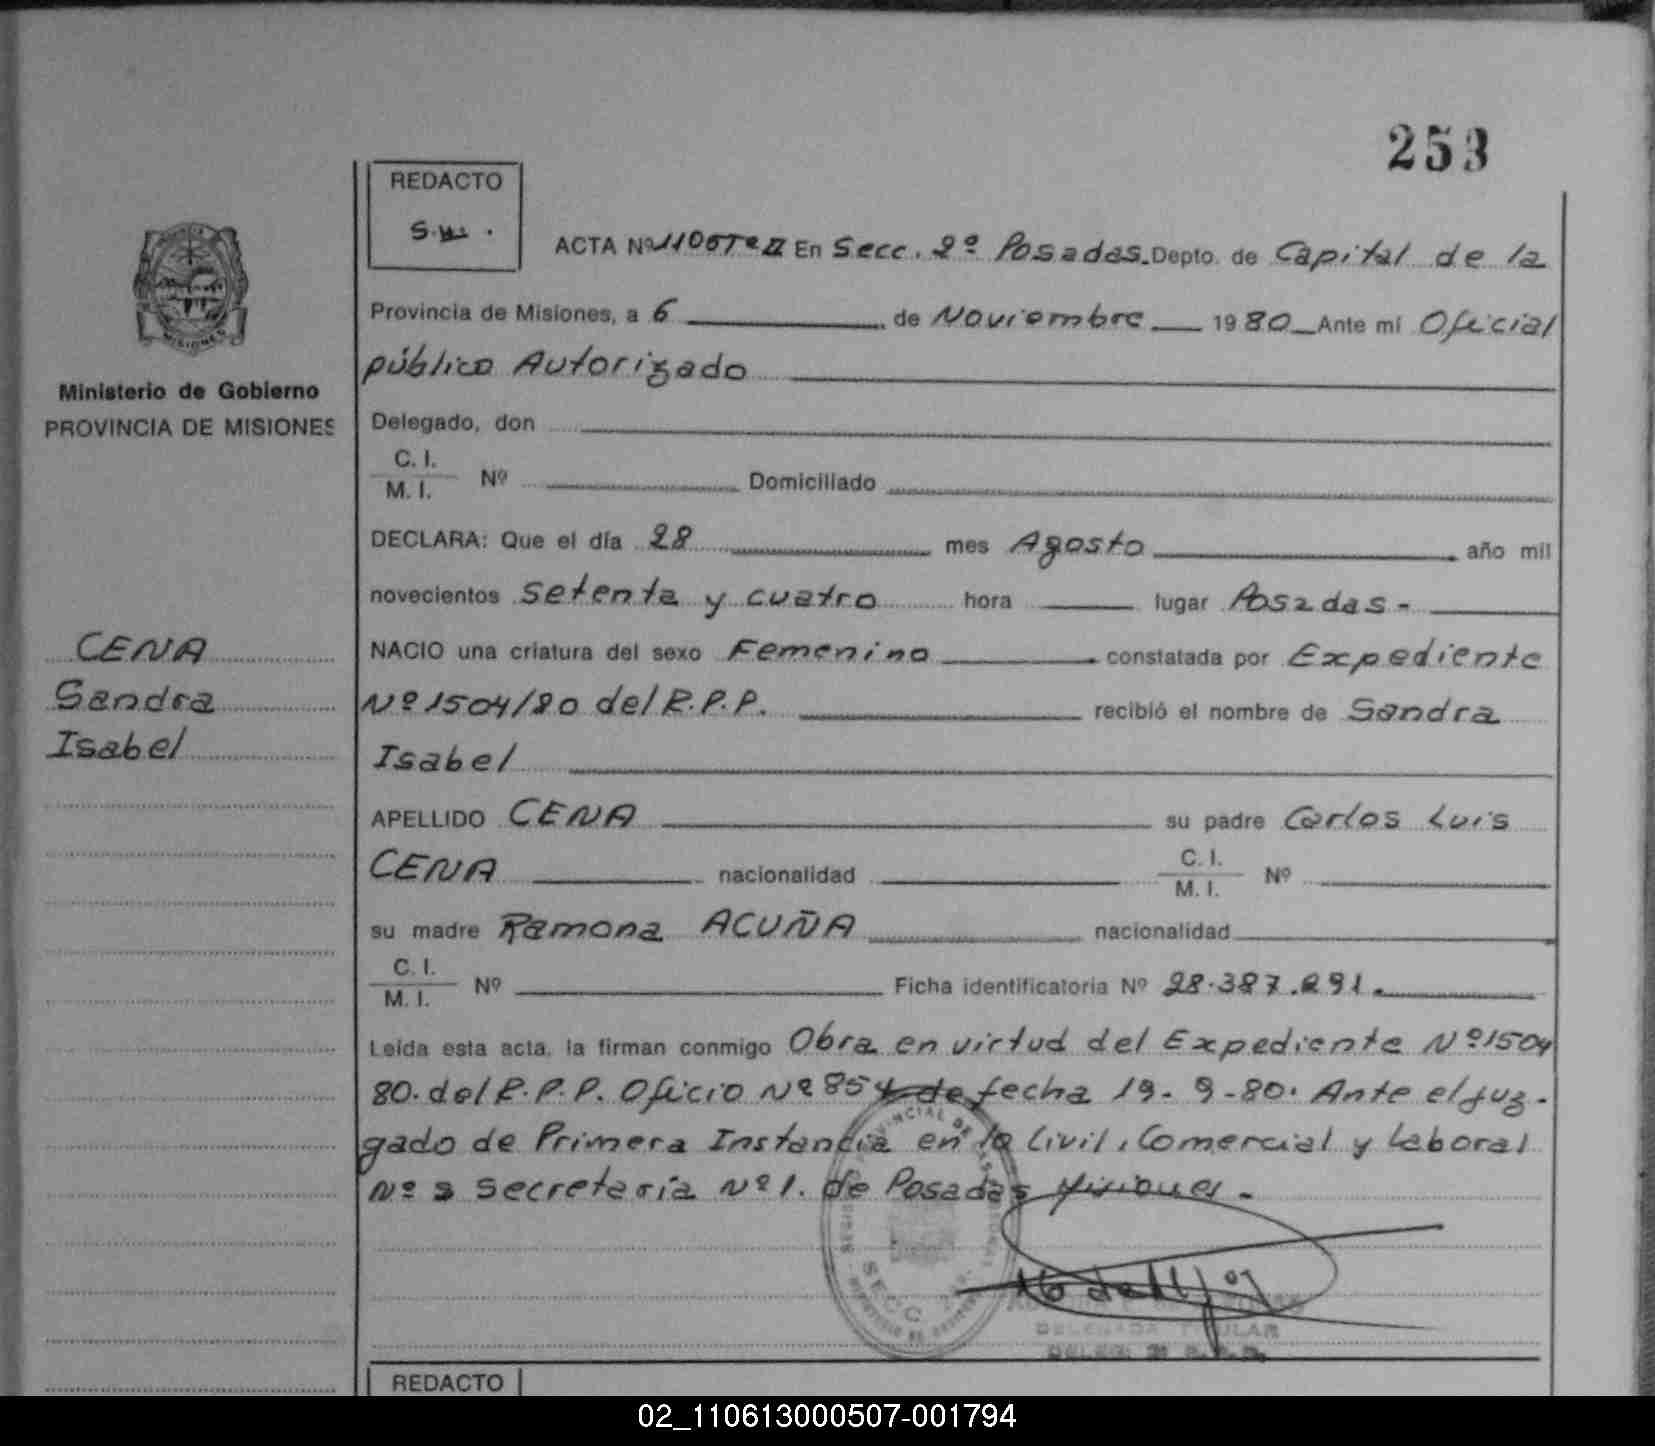 253
REDACTO
S.W.
ACTA Nº 1106Tº II En Secc. 2º Posadas. Depto. de Capital de la
Provincia de Misiones, a 6 de Noviembre 1980 Ante mí Oficial
público Autorizado
MISIONES
Ministerio de Gobierno
PROVINCIA DE MISIONES
Delegado, don
C. I.
M. I. Nº Domiciliado
DECLARA: Que el día 28 mes Agosto año mil
novecientos setenta y cuatro hora lugar Posadas-
CENA
Sandra
Isabel
NACIO una criatura del sexo Femenino constatada por Expediente
Nº 1504/80 del R.P.P. recibió el nombre de Sandra
Isabel
APELLIDO CENA su padre Carlos Luis
CENA nacionalidad C. I. M. I. Nº
su madre Ramona ACUÑA nacionalidad
C. I.
M. I. Nº Ficha identificatoria Nº 28.387.291.
Leída esta acta, la firman conmigo Obra en virtud del Expediente Nº 1504
80. del R.P.P. Oficio Nº 854 de fecha 19-9-80. Ante el Juz-
gado de Primera Instancia en lo Civil, Comercial y Laboral
Nº 3 Secretaría Nº 1. de Posadas Misiones-
SECC
DELEGADA TITULAR
REDACTO
02_110613000507-001794